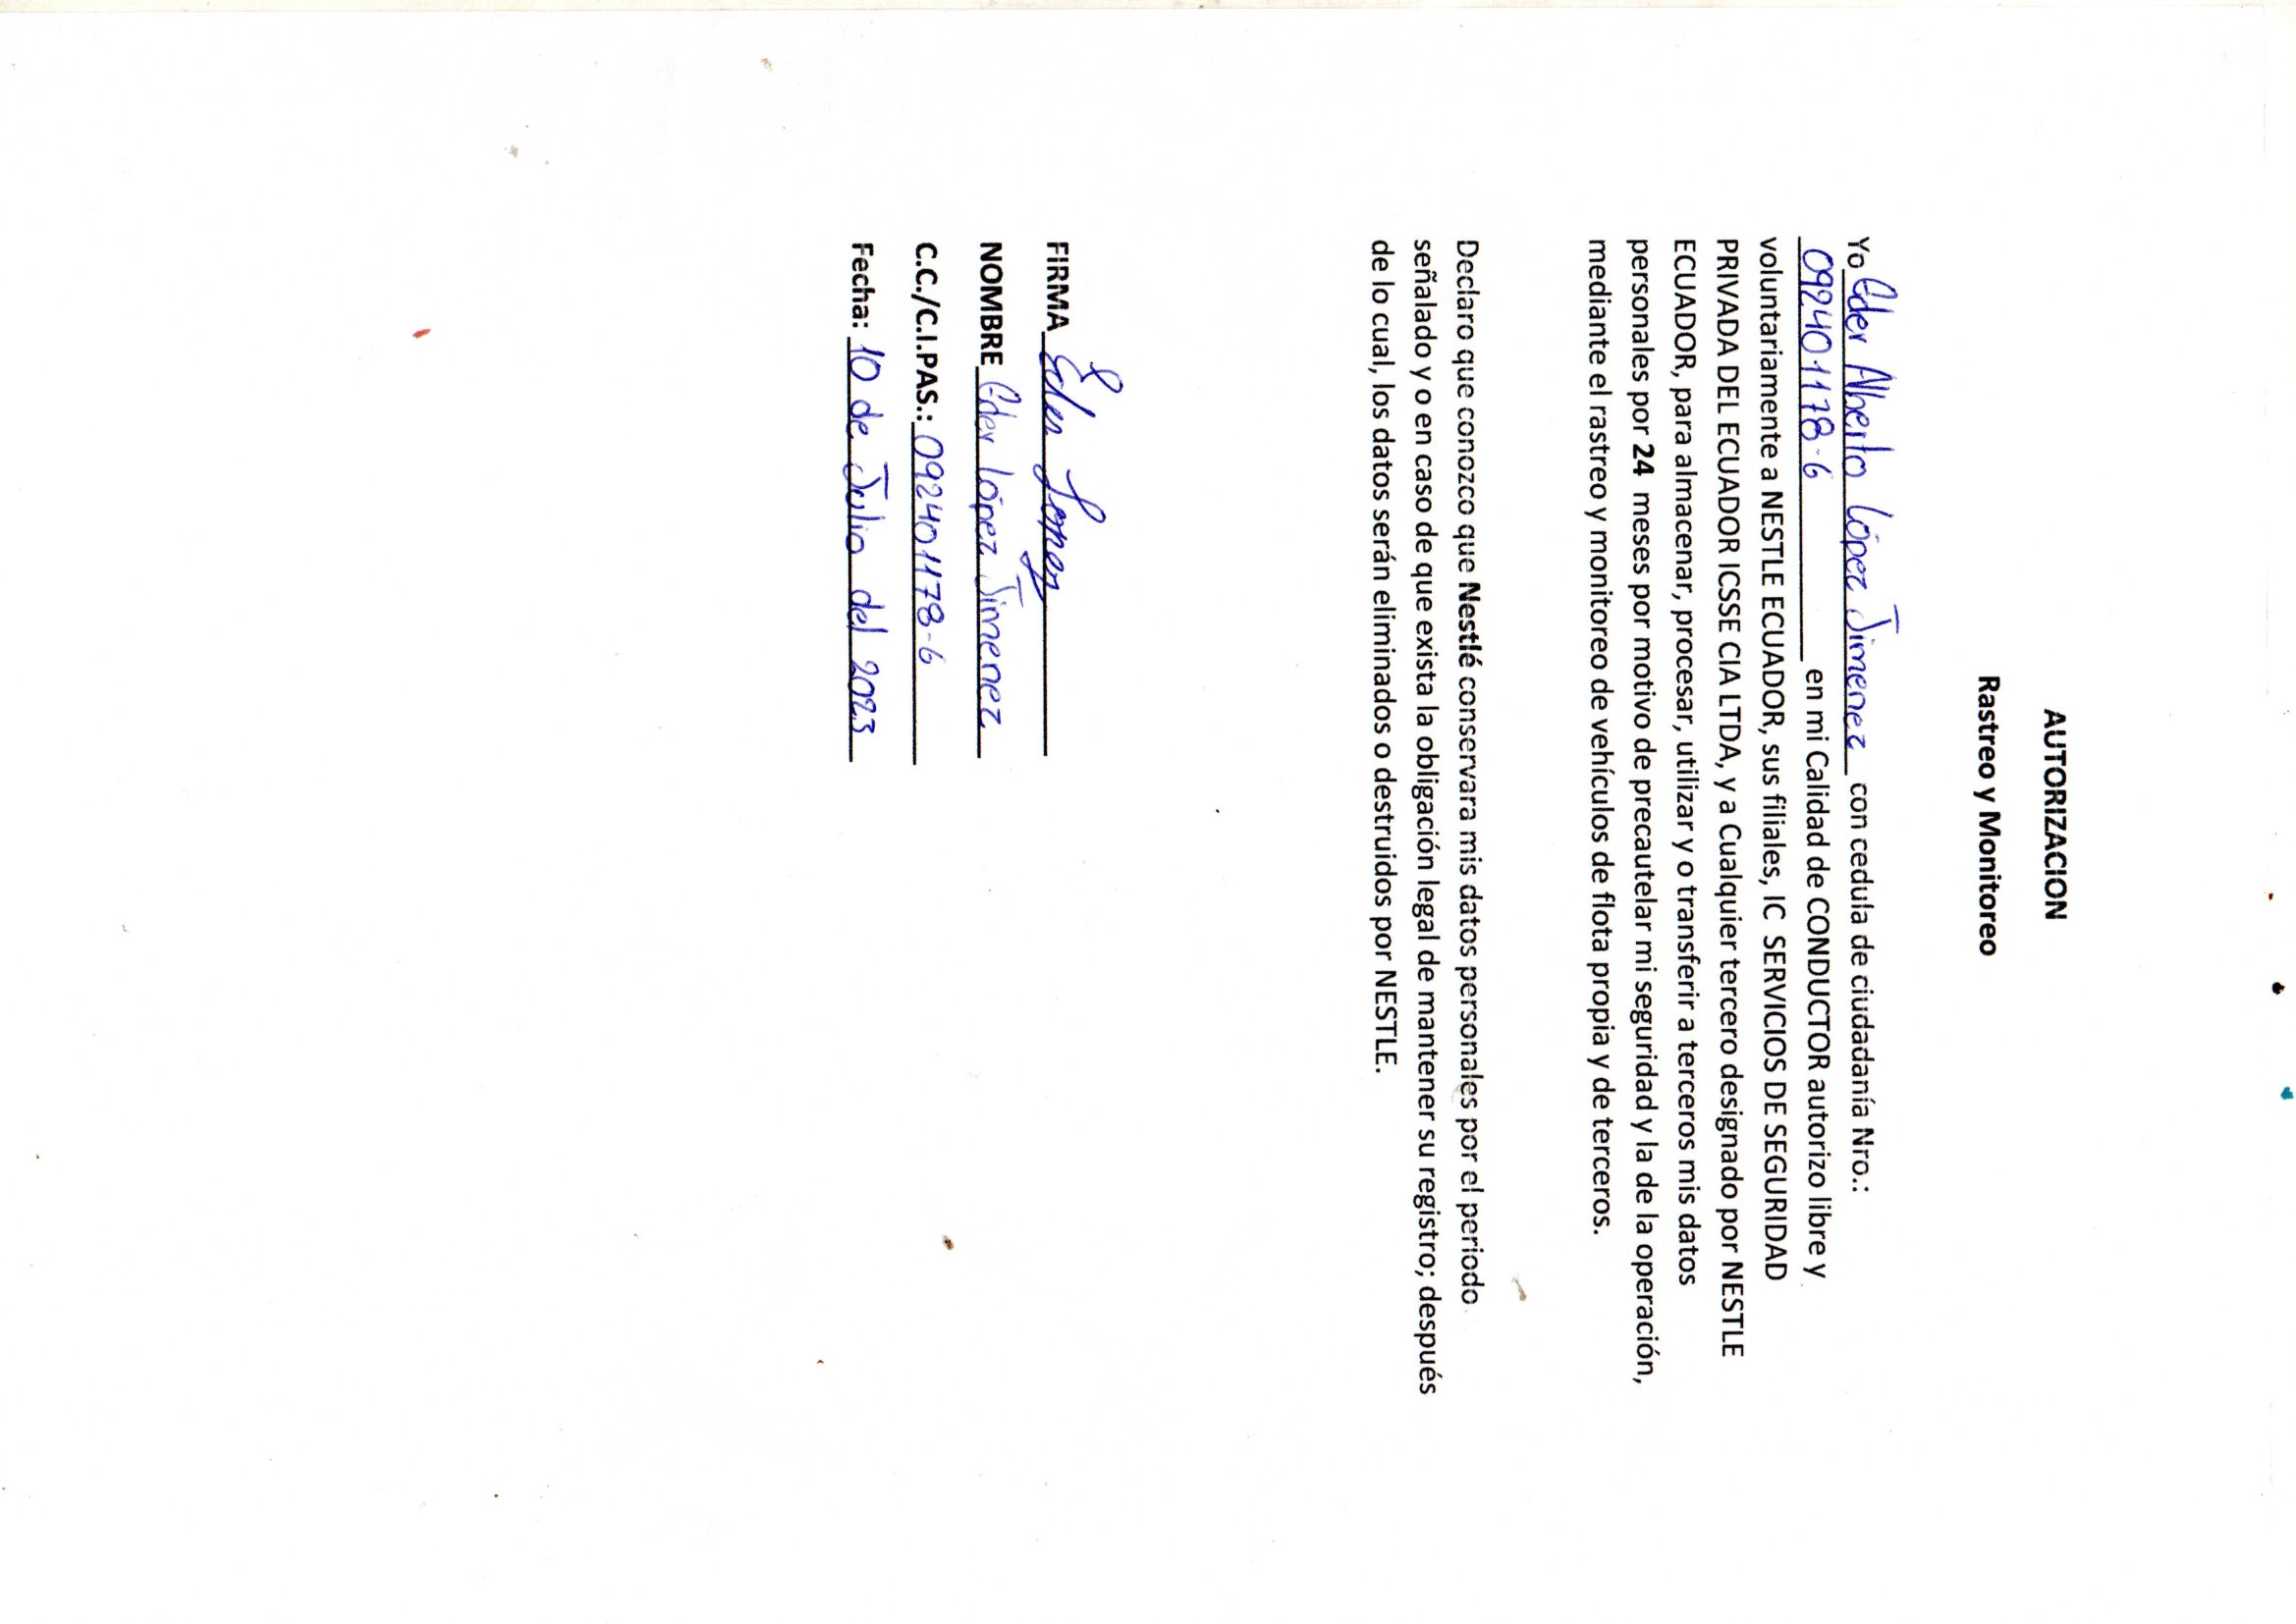 AUTORIZACION
Rastreo y Monitoreo
Yo Eder Alberto López Jimenez con cedula de ciudadanía Nro.:
092401178-6 en mi Calidad de CONDUCTOR autorizo libre y
voluntariamente a NESTLE ECUADOR, sus filiales, IC SERVICIOS DE SEGURIDAD
PRIVADA DEL ECUADOR ICSSE CIA LTDA, y a Cualquier tercero designado por NESTLE
ECUADOR, para almacenar, procesar, utilizar y o transferir a terceros mis datos
personales por 24 meses por motivo de precautelar mi seguridad y la de la operación,
mediante el rastreo y monitoreo de vehículos de flota propia y de terceros.
Declaro que conozco que Nestlé conservara mis datos personales por el periodo
señalado y o en caso de que exista la obligación legal de mantener su registro; después
de lo cual, los datos serán eliminados o destruidos por NESTLE.
FIRMA Eder Lopez
NOMBRE Eder López Jimenez
C.C./C.I.PAS.: 092401178-6
Fecha: 10 de Julio del 2023